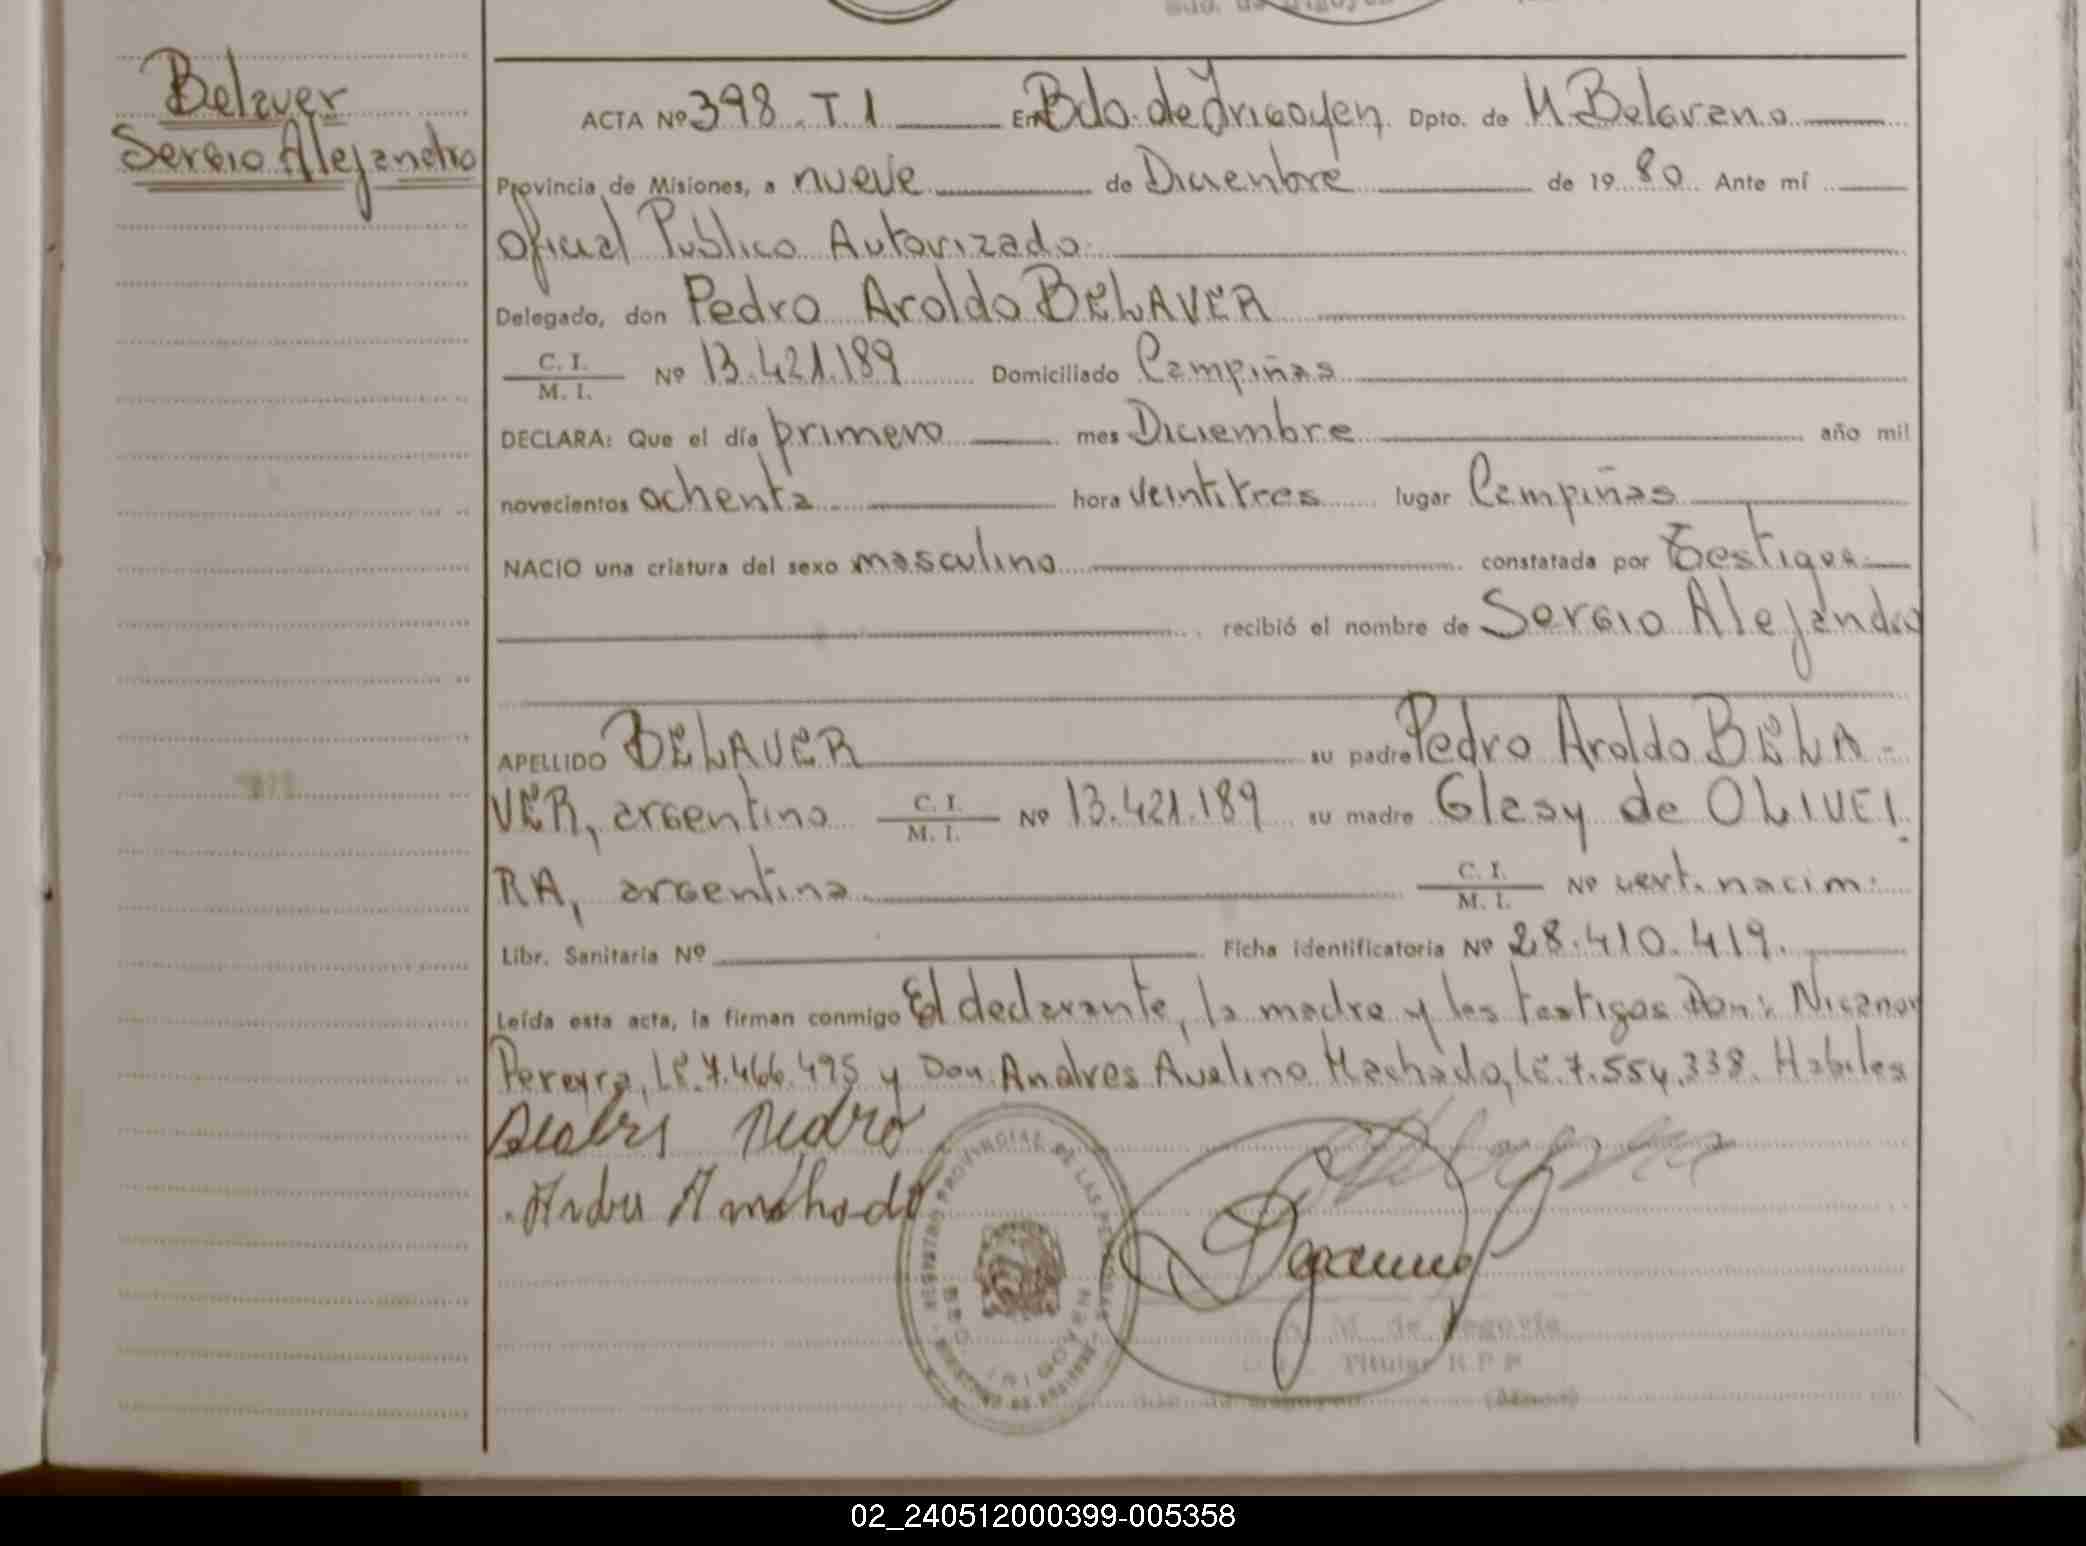 Belaver
Sergio Alejandro
ACTA Nº 398. T. 1 En Bdo. de Irigoyen. Dpto. de M. Belgrano
Provincia de Misiones, a nueve de Diciembre de 1980. Ante mí
Oficial Público Autorizado
Delegado, don Pedro Aroldo BELAVER
C. I.
M. I. Nº 13.421.189 Domiciliado Campiñas
DECLARA: Que el día primero mes Diciembre año mil
novecientos ochenta hora veintitres lugar Campiñas
NACIO una criatura del sexo masculino constatada por Testigos
recibió el nombre de Sergio Alejandro
APELLIDO BELAVER su padre Pedro Aroldo BELA-
VER, argentino C. I. M. I. Nº 13.421.189 su madre Glesy de OLIVEI
RA, argentina C. I. M. I. Nº cert. nacim.
Libr. Sanitaria Nº Ficha identificatoria Nº 28.410.419.
Leída esta acta, la firman conmigo El declarante, la madre y los testigos Don: Nicanor
Pereyra, LE. 7.466.495 y Don: Andres Avelino Machado, LE. 7.554.338. Habiles
REGISTRO PROVINCIAL DE LAS PERSONAS
BDO. IRIGOYEN
M. de Segovia
Titular R.P.P.
02_240512000399-005358